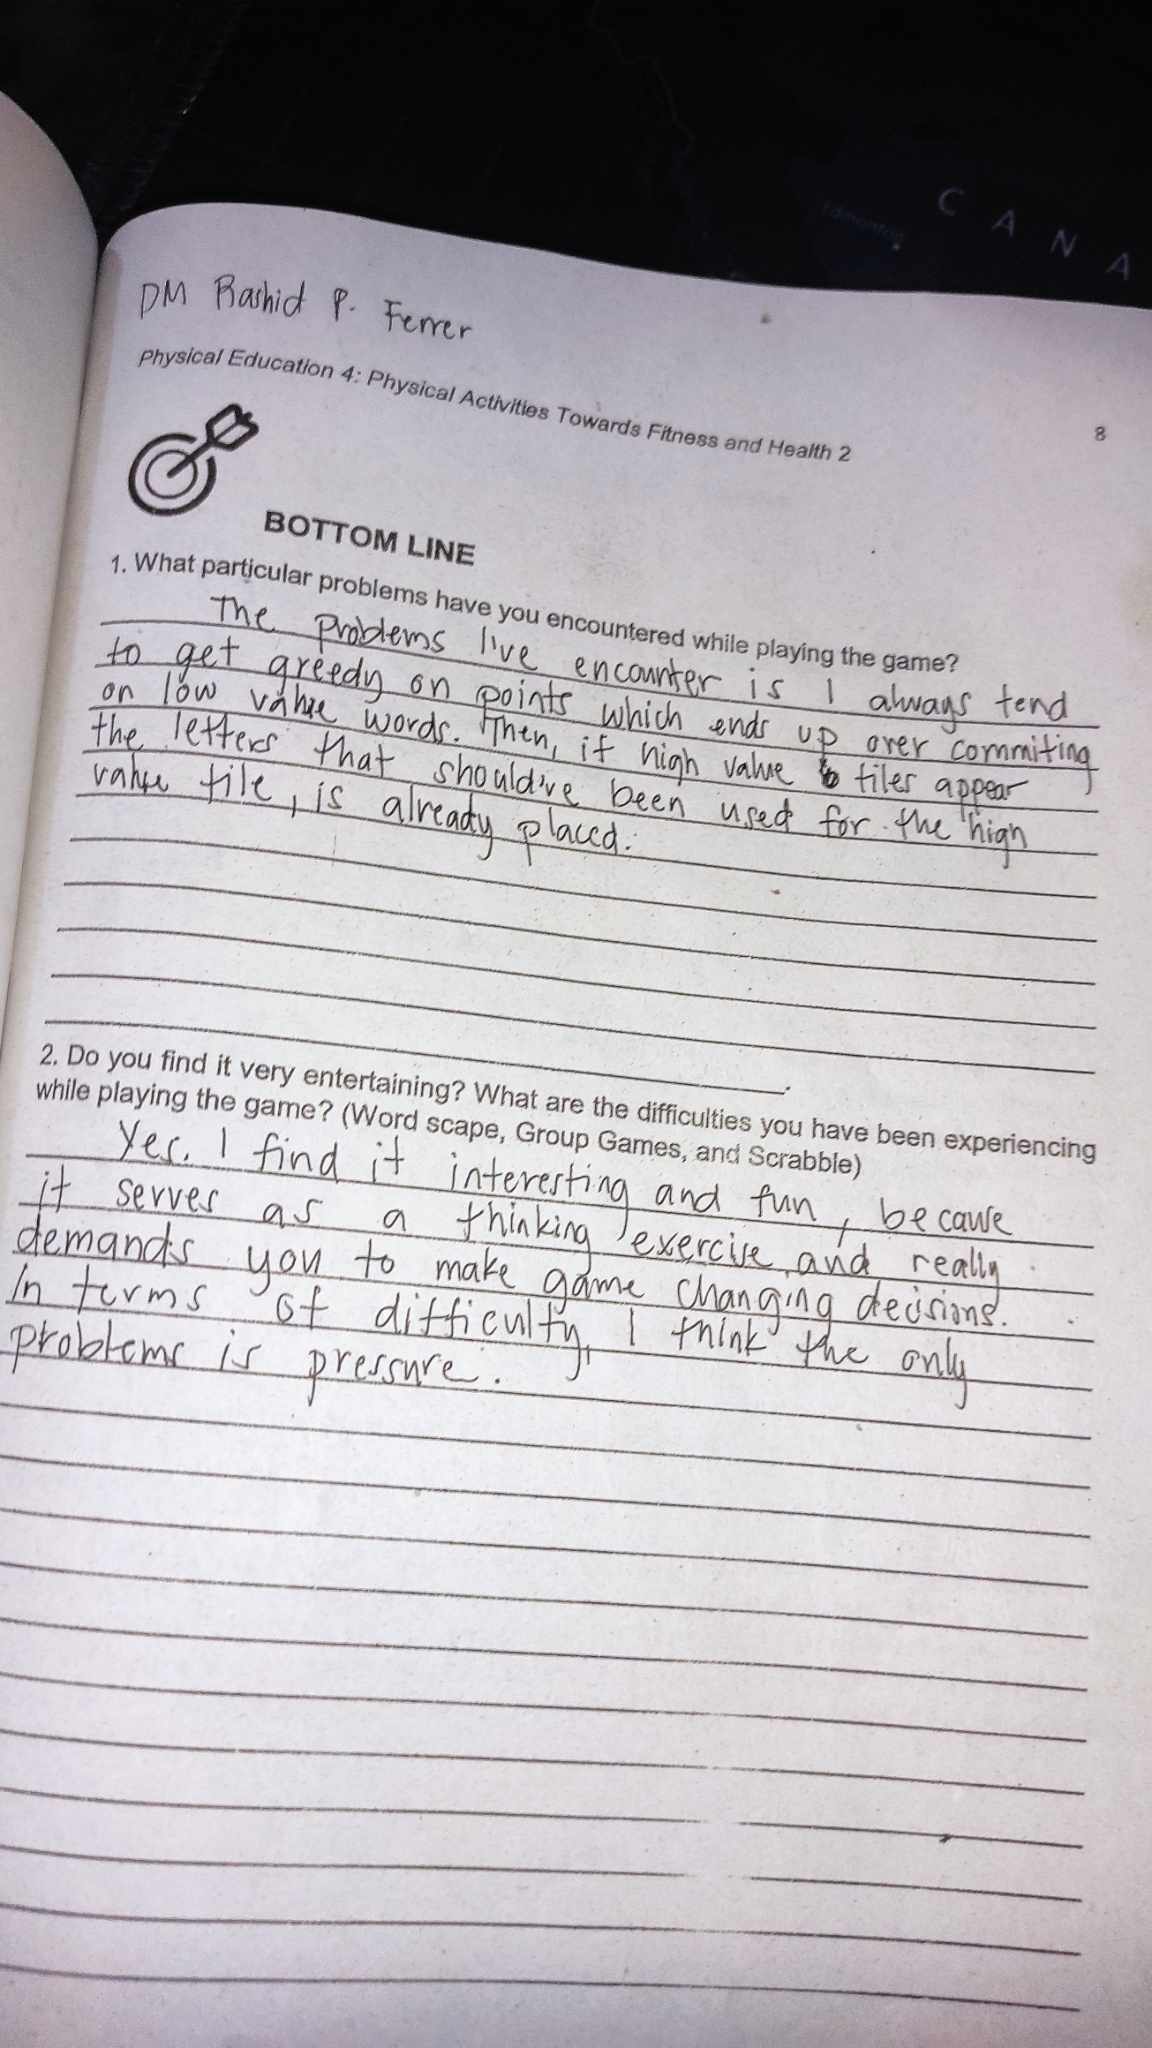 C A N A
Edmonton
DM Rashid P. Ferrer
Physical Education 4: Physical Activities Towards Fitness and Health 2
8
BOTTOM LINE
1. What particular problems have you encountered while playing the game?
The problems I've encounter is I always tend
to get greedy on points which ends up over commiting
on low value words. Then, if high value tiles appear
the letters that should've been used for the high
value tile, is already placed.
2. Do you find it very entertaining? What are the difficulties you have been experiencing
while playing the game? (Word scape, Group Games, and Scrabble)
Yes. I find it interesting and fun, because
it serves as a thinking exercise and really
demands you to make game changing decisions.
In terms of difficulty, I think the only
problems is pressure.